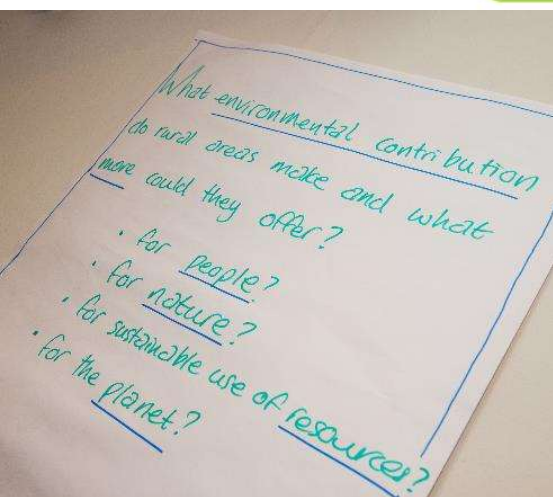 What environmental contribution
do rural areas make and what
more could they offer?
• for people?
• for nature?
• for sustainable use of resources?
• for the planet?